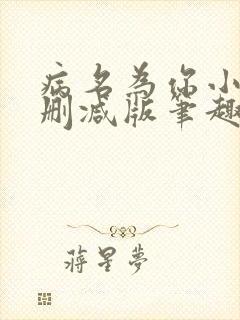 病名為你小
刪减版筆趣
蔣星夢